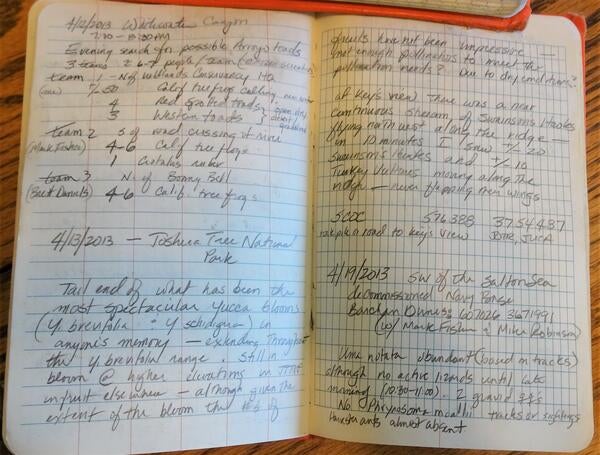 4/12/2013 Whitewater Canyon
7:00 - 8:30 PM
Evening search for possible Arroyo toads
3 teams 6-7 people/team (citizen scientists)
team 1 - N of Wildlands Conservancy HQ
(me) +/- 50 Calif tree frogs calling, near water
4 Red Spotted toads } open dry
3 Western toads } desert / grassland
Team 2 S of road crossing at river
(Mark Fisher) 4-6 Calif tree frogs
1 Crotalus ruber
team 3 N. of Bonny Bell
(Brett Daniels) 4-6 Calif. tree frogs
4/13/2013 — Joshua Tree National
Park
Tail end of what has been the
most spectacular Yucca blooms
(Y. brevifolia : Y schidigera) in
anyone's memory — extending throughout
the Y. brevifolia range. Still in
bloom @ higher elevations in JTNP
in fruit elsewhere — although given the
extent of the bloom the #s of
fruits have not been impressive —
(not enough pollinators to meet the
pollination needs? Due to dry conditions?
At Keys view there was a near
continuous stream of Swainsons Hawks
flying north west along the ridge —
in 10 minutes I saw +/- 20
Swainson's Hawks and +/- 10
Turkey Vultures moving along the
ridge — never flapping their wings
576388 3754487
road to Key's view JOTR, JUCA
4/19/2013 SW of the Salton Sea
decommissioned Navy Range
Barchan Dunes: 607026 3671991
(w/ Mark Fisher & Mike Robinson)
Uma notata abundant (based on tracks)
although no active lizards until late
morning (10:30-11:00). 2 gravid ♀♀s
No Phrynosoma mcallii tracks or sightings
Harvester ants almost absent